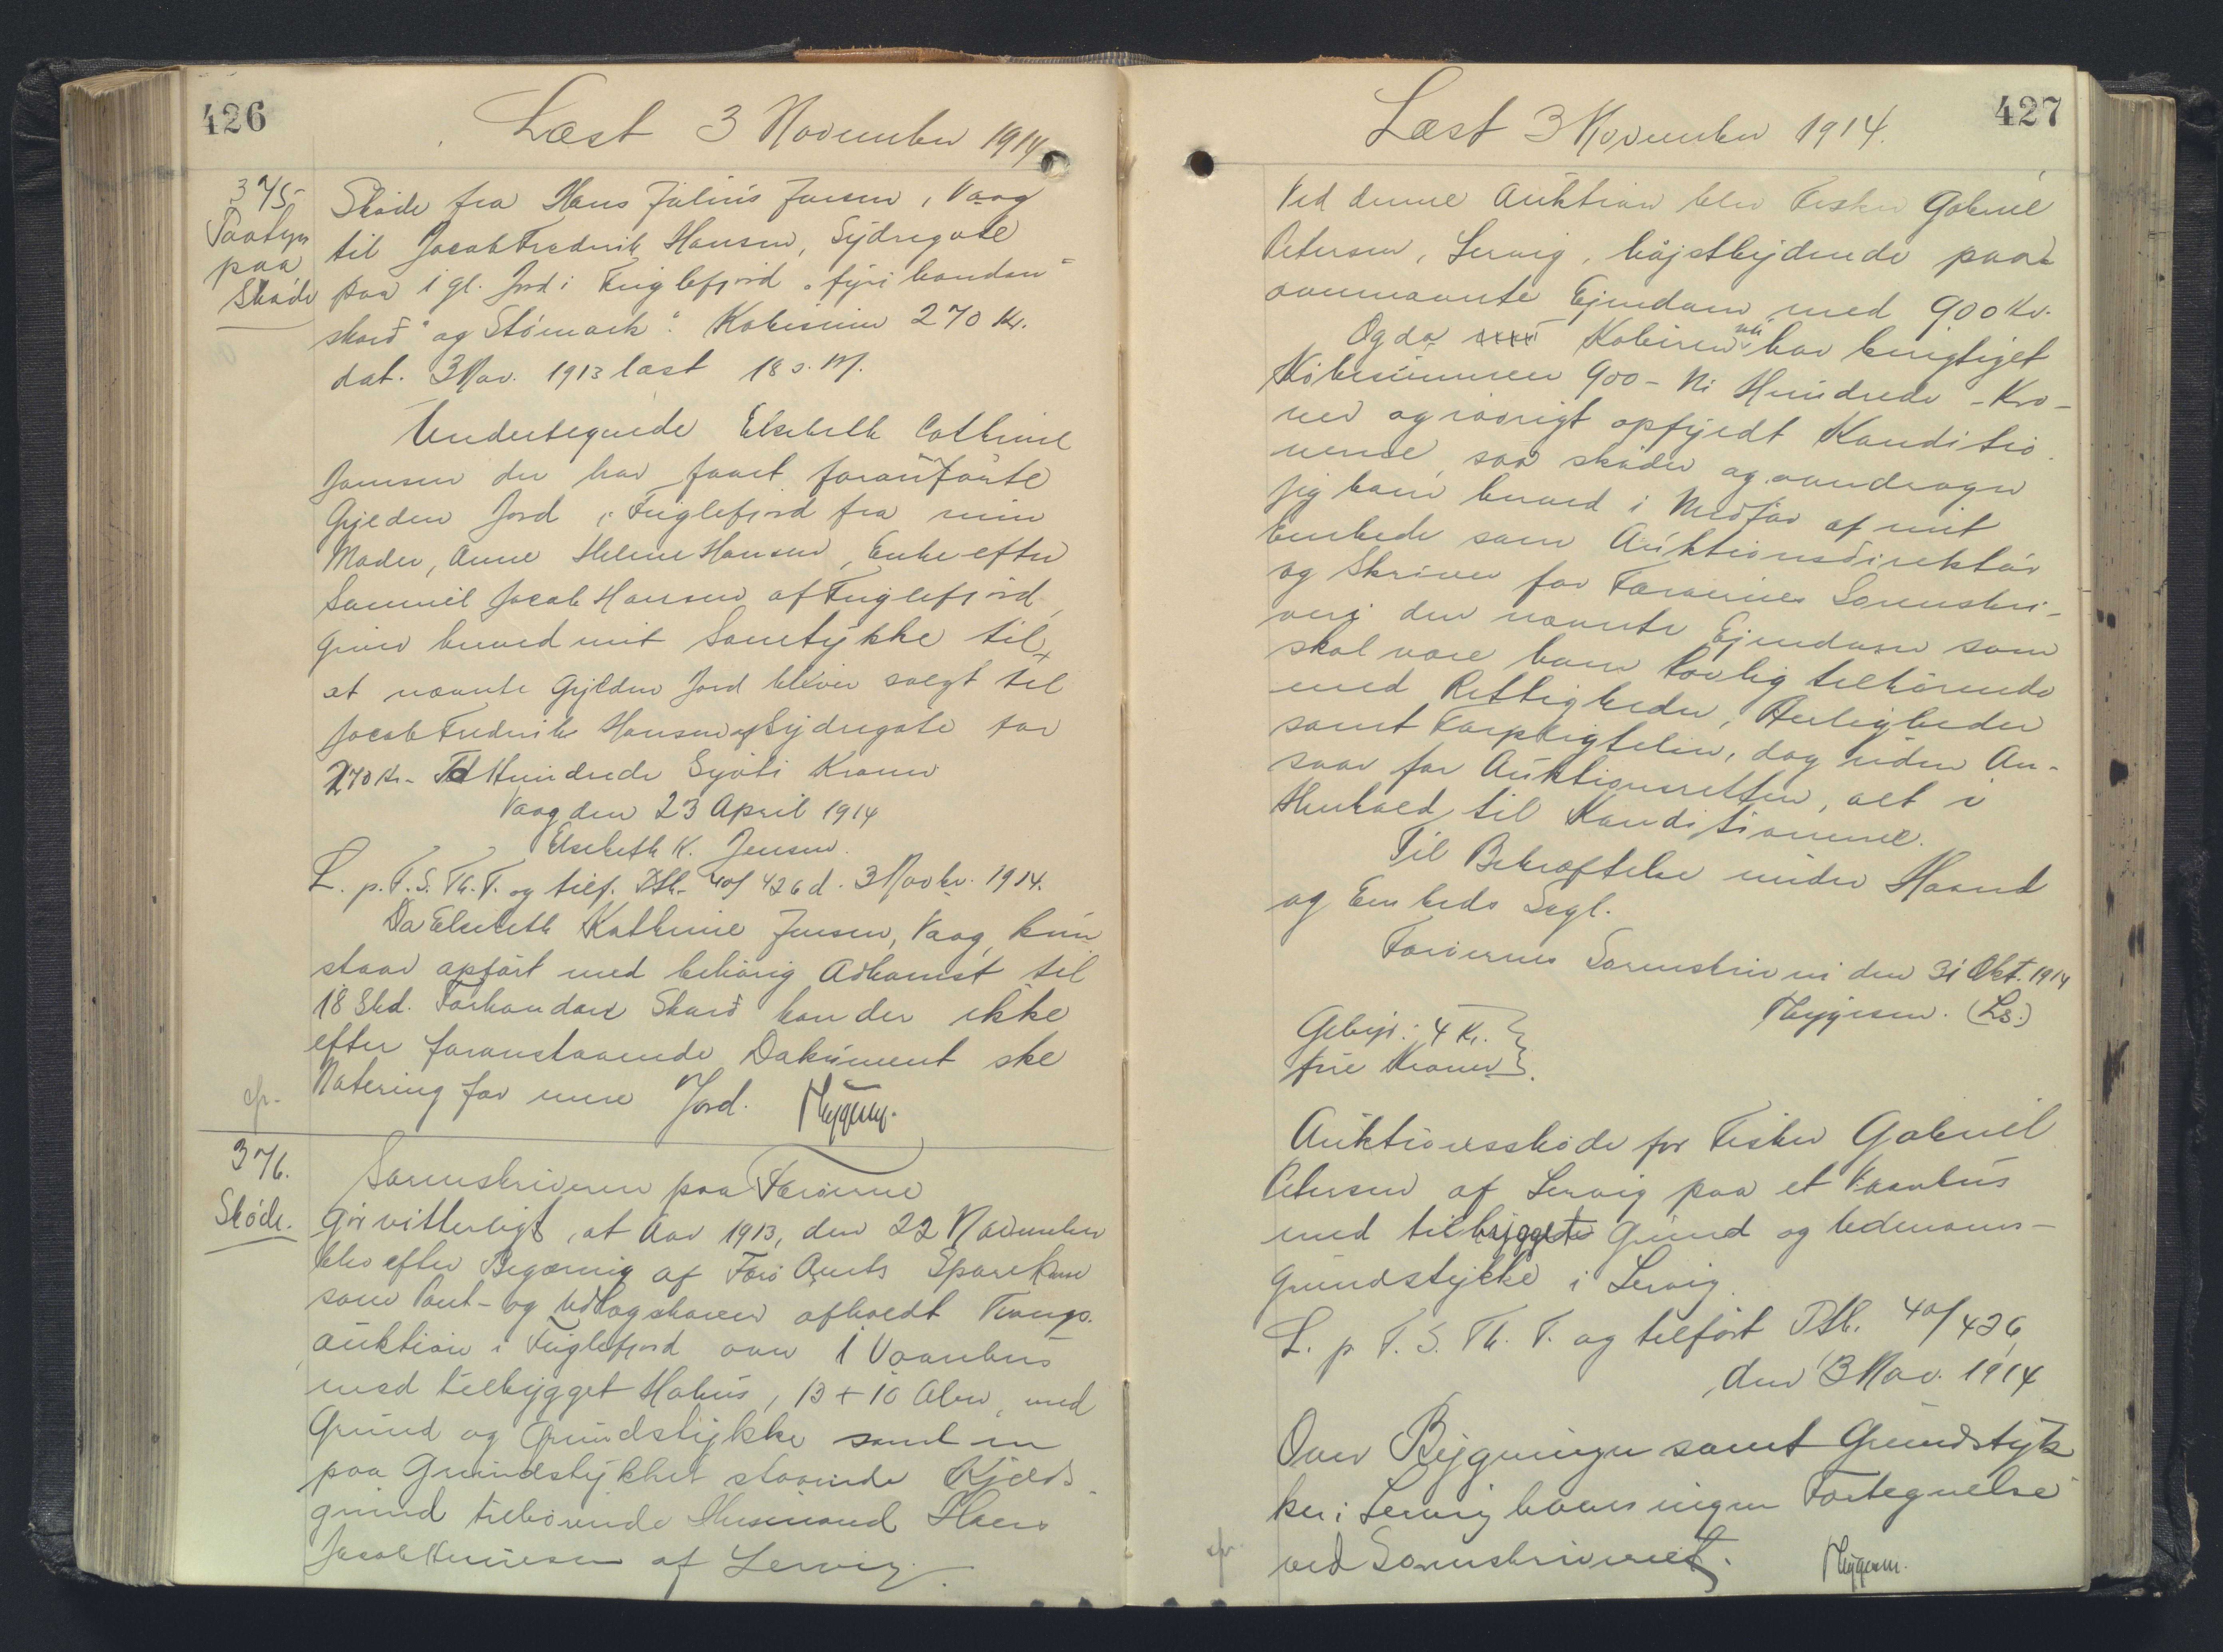 426
Læst 3 November 1914
375
Paategn
paa
Skøde
Skøde fra Hans Julius Jensen, Vaag
til Jacob Fredrik Hansen, Sydregøte
paa 1 gl. Jord i Fuglefjord "fyri handan
skard" og Stömark". Købesum 270 Kr.
dat. 3 Nov. 1913 læst 18 s. M.
Undertegnede Elsebeth Cathrine
Jensen der har faaet foranførte
Gylden Jord i Fuglefjord fra min
Moder, Anne Helene Hansen, Enke efter
Samuel Jacob Hansen af Fuglefjord,
giver herved mit Samtykke til
at nævnte Gylden Jord bliver solgt til
Jacob Fredrik Hansen af Sydregøte for
270 Kr. - To Hundrede Syvti Kroner
Vaag den 23 April 1914
Elsebeth K. Jensen.
L. p. F. S. Th. T. og tilf. Dsk. 40/426 d. 3 Novbr. 1914.
Da Elsebeth Kathrine Jensen, Vaag, kun
staar opført med behørig Adkomst til
18 Skd. Forhandan Skard kan der ikke
efter foranstaaende Dokument ske
Notering for mere Jord. Thygesen.
cfr.
376.
Skøde.
Sorenskriveren paa Færøerne
Gør vitterligt, at Aar 1913, den 22 November
blev efter Begæring af Færø Amts Sparekasse
som Pant- og Udlægshaver afholdt Tvangs-
auktion i Fuglefjord over 1 Vaanhus
med tilbygget Hohus, 13 + 10 Alen, med
Grund og Grundstykke samt en
paa Grundstykket staaende Kjeld-
grund tilhørende Husmand Hans
Jacob Henriksen af Lervig.
427
Læst 3 November 1914.
Ved denne Auktion blev Fisker Gabriel
Petersen, Lervig, højstbydende paa
ovennævnte Ejendom med 900 Kr.
Og da xxxx Køberen nu har berigtiget
Købesummen 900 - Ni Hundrede - Kro-
ner og iøvrigt opfyldt Konditio-
nerne, saa skøder og overdrager
jeg ham herved i Medfør af mit
Embede som Auktionsdirektør
og Skriver for Færøernes Sorenskri-
veri den nævnte Ejendom som
skal være ham lovlig tilhørende
med Rettigheder, Herligheder
samt Forpligtelser, dog uden An-
svar for Auktionsretten, alt i
Henhold til Konditionerne.
Til Bekræftelse under Haand
og Embeds Segl.
Færøernes Sorenskriveri den 31 Okt. 1914
Thygesen. (Ls.)
Gebyr: 4 Kr.
fire Kroner
Auktionsskøde for Fisker Gabriel
Petersen af Lervig paa et Vaanhus
med tilbyggede Grund og hedemans-
grundstykke i Lervig.
L. p. F. S. Th. T. og tilført Dsk. 40/426
den 3 Nov. 1914
Over Bygninger samt Grundstyk
ker i Lervig haves ingen Fortegnelse
ved Sorenskriveriet. Thygesen.
cfr.